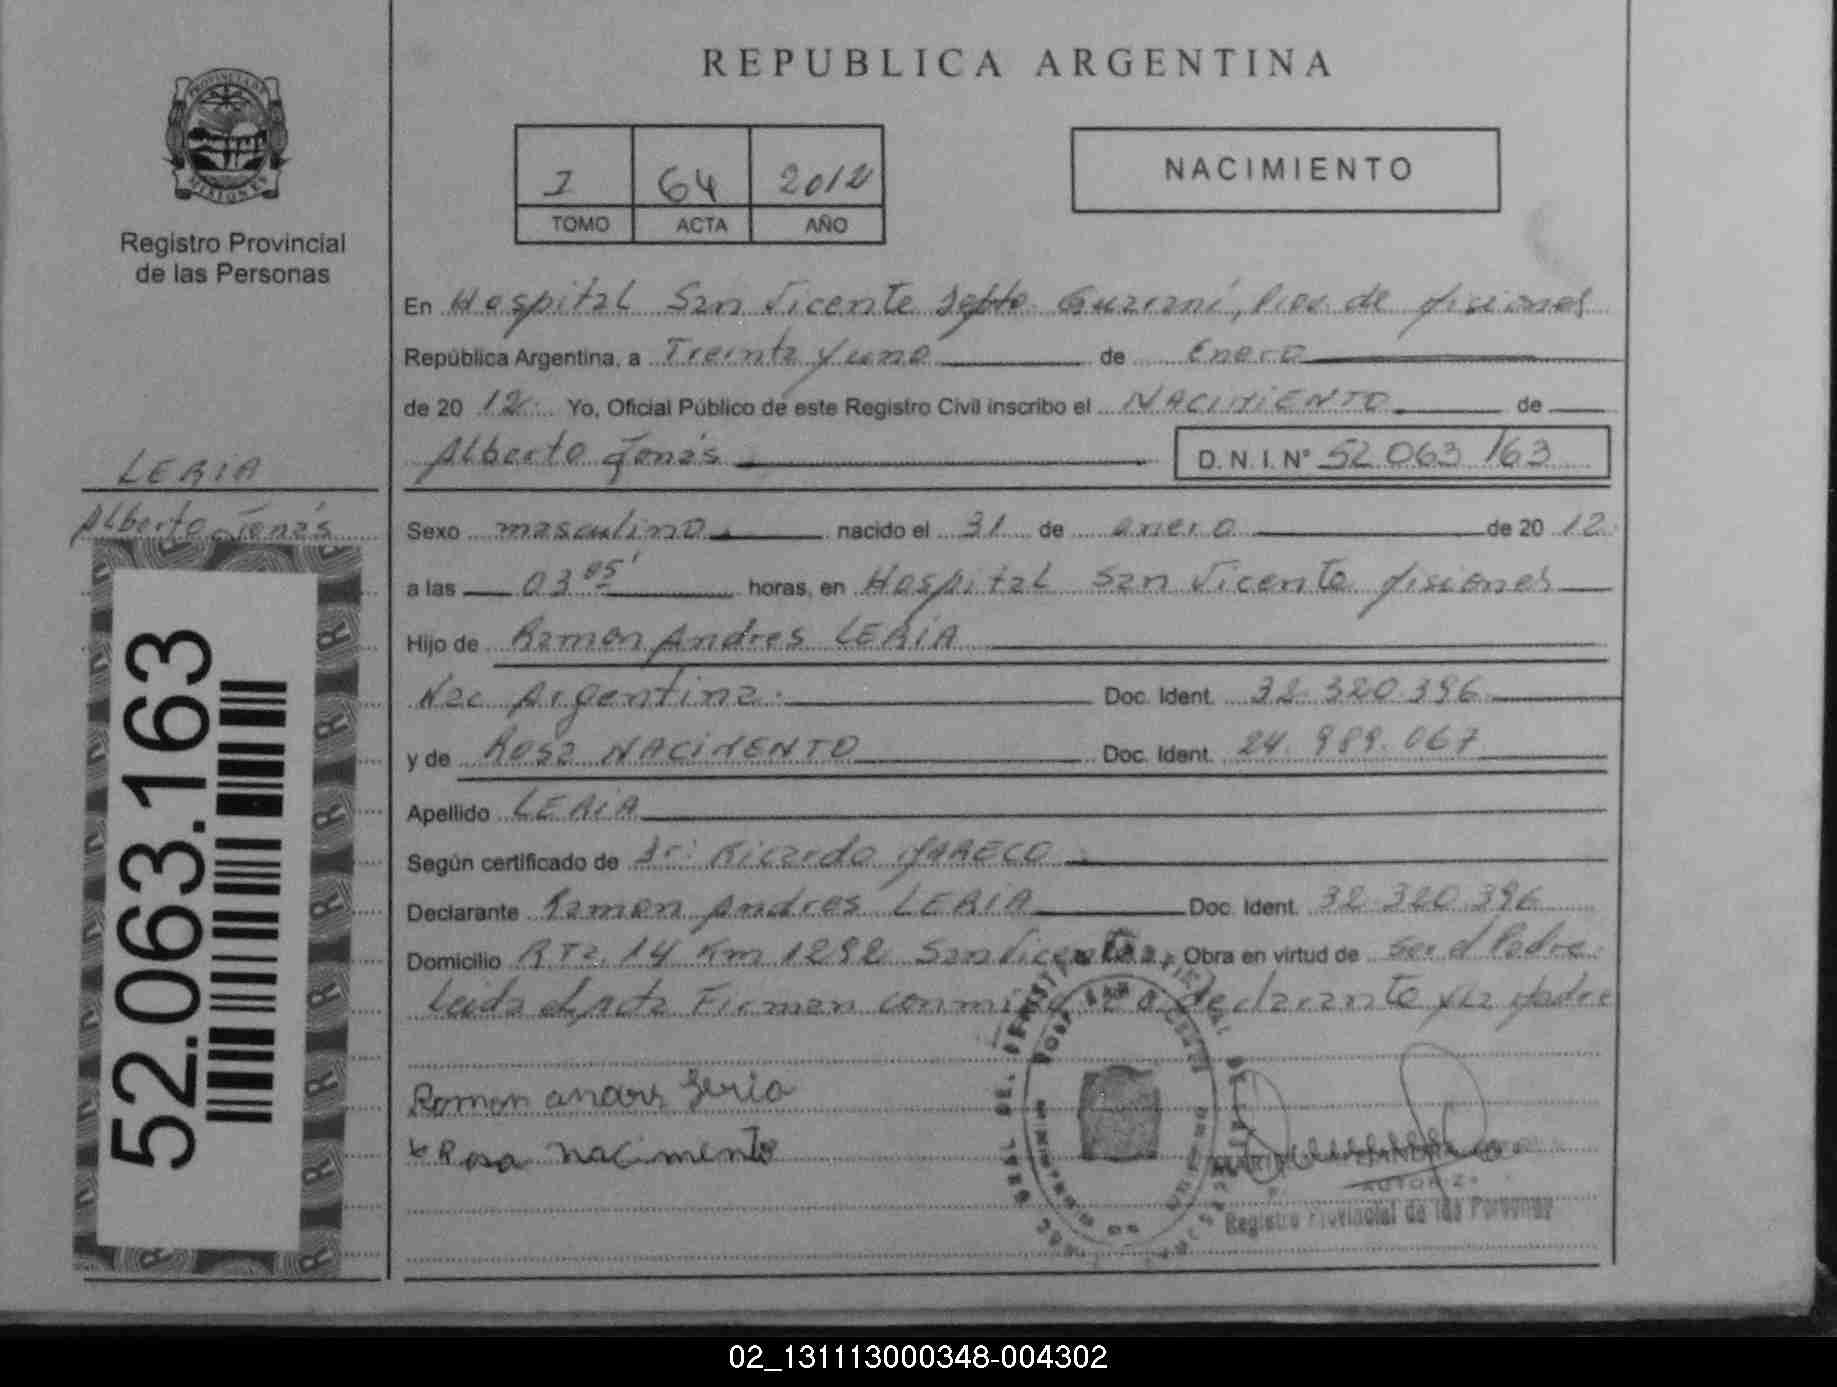 REPUBLICA ARGENTINA
PROVINCIA DE
MISIONES
Registro Provincial
de las Personas
I 64 2012
TOMO ACTA AÑO
NACIMIENTO
En Hospital San Vicente Depto. Guaraní, Prov. de Misiones
República Argentina, a Treinta y uno de Enero
de 20 12 Yo, Oficial Público de este Registro Civil inscribo el NACIMIENTO de
Alberto Jonás D.N.I.N° 52.063.163
LERIA
Alberto Jonás
Sexo masculino nacido el 31 de enero de 20 12
a las 03 05' horas, en Hospital San Vicente Misiones
Hijo de Ramon Andres LERIA
Nac Argentina. Doc. Ident. 32.320.396
y de Rosa NACIMENTO Doc. Ident. 24.989.067
Apellido LERIA
Según certificado de Dr: Ricardo MARECO
Declarante Ramon Andres LERIA Doc. Ident. 32.320.396
Domicilio RTa. 14 Km 1282 San Vicente Obra en virtud de Ser el Padre.
Leida el Acta Firman conmigo declarante y la Madre
Ramon andres Leria
x Rosa nacimento
Registro Provincial de las Personas
52.063.163
02_131113000348-004302